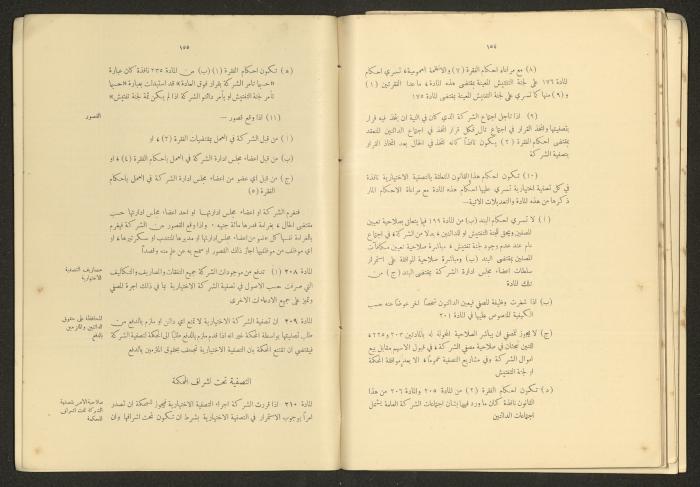 ١٥٤
(٨) مع مراعاة احكام الفقرة (٧) والانظمة العمومية، تسري احكام
المادة ١٧٦ على لجنة التفتيش المعينة بمقتضى هذه المادة، ما عدا الفقرتين (١)
و(٩) منها كما تسري على لجنة التفتيش المعينة بمقتضى المادة ١٧٥
(٩) اذا تأجل اجتماع الشركة الذي كان في النية ان يتخذ فيه قرار
بتصفيتها واتخذ القرار في اجتماع تال فكل قرار اتخذ في اجتماع الدائنين المنعقد
بمقتضى احكام الفقرة (٢) يكون نافذاً كأنه اتخذ في الحال بعد اتخاذ القرار
بتصفية الشركة
(١٠) تكون احكام هذا القانون المتعلقة بالتصفية الاختيارية نافذة
في كل تصفية اختيارية تسري عليها احكام هذه المادة مع مراعاة الاحكام المار
ذكرها من هذه المادة والتعديلات الآتية—
(أ) لا تسري احكام البند (ب) من المادة ١٩٩ فيما يتعلق بصلاحية تعيين
المصفين ويجوز للجنة التفتيش او للدائنين، بدلا من الشركة، في اجتماع
عام عند عدم وجود لجنة تفتيش، مباشرة صلاحية تعيين مكافآت
المصفين بمقتضى البند (ب) ومباشرة صلاحية الموافقة على استمرار
سلطات اعضاء مجلس ادارة الشركة بمقتضى البند (ج) من
تلك المادة
(ب) اذا شغرت وظيفة المصفي فيعين الدائنون شخصاً آخر عوضاً عنه حسب
الكيفية المنصوص عليها في المادة ٢٠١
(ج) لا يجوز للمصفي ان يباشر الصلاحية المخولة له بالمادتين ٢٠٣ و٢٢٥،
اللتين تبحثان في صلاحية مصفي الشركة، في قبول الاسهم مقابل بيع
اموال الشركة وفي مشاريع التصفية عموماً، الا بعد موافقة المحكمة
او لجنة التفتيش
(د) تكون احكام الفقرة (٢) من المادة ٢٠٥ والمادة ٢٠٦ من هذا
القانون نافذة كأن ما ورد فيها بشأن اجتماعات الشركة العامة يشمل
اجتماعات الدائنين
١٥٥
(ه) تكون احكام الفقرة (١) (ب) من المادة ٢٣٥ نافذة كأن عبارة
«حسبما تأمر الشركة بقرار فوق العادة» قد استبدلت بعبارة «حسبما
تأمر لجنة التفتيش او يأمر دائنو الشركة اذا لم يكن ثمة لجنة تفتيش»
القصور
(١١) اذا وقع قصور —
(أ) من قبل الشركة في العمل بمقتضيات الفقرة (٢)، او
(ب) من قبل اعضاء مجلس ادارة الشركة في العمل باحكام الفقرة (٤)، او
(ج) من قبل اي عضو من اعضاء مجلس ادارة الشركة في العمل باحكام
الفقرة (٥)
فتغرم الشركة او اعضاء مجلس ادارتها او احد اعضاء مجلس ادارتها حسب
مقتضى الحال، بغرامة قدرها مائة جنيه. واذا وقع القصور من الشركة فيغرم
بالغرامة نفسها كل عضو من اعضاء مجلس ادارتها او مديرها المنتدب او سكرتيرها، او
اي موظف من موظفيها اجاز ذلك القصور او سمح به عن علم منه وقصداً
مصاريف التصفية
الاختيارية
المادة ٢٠٨ (١) تدفع من موجودات الشركة جميع النفقات والمصاريف والتكاليف
التي صرفت حسب الاصول في تصفية الشركة الاختيارية بما في ذلك اجرة المصفي
وتميز على جميع الادعاءات الاخرى
المحافظة على حقوق
الدائنين والملزمين
بالدفع
المادة ٢٠٩ ان تصفية الشركة الاختيارية لا تمنع اي دائن او ملزم بالدفع من
طلب تصفيتها بواسطة المحكمة غير انه اذا قدم ملزم بالدفع طلباً الى المحكمة لتصفية الشركة
فيقتضي ان تقتنع المحكمة بان التصفية الاختيارية تجحف بحقوق الملزمين بالدفع
التصفية تحت اشراف المحكمة
صلاحية الامر بتصفية
الشركة تحت اشراف
المحكمة
المادة ٢١٠ اذا قررت الشركة اجراء التصفية الاختيارية فيجوز للمحكمة ان تصدر
امراً بوجوب الاستمرار في التصفية الاختيارية بشرط ان تكون تحت اشرافها وان